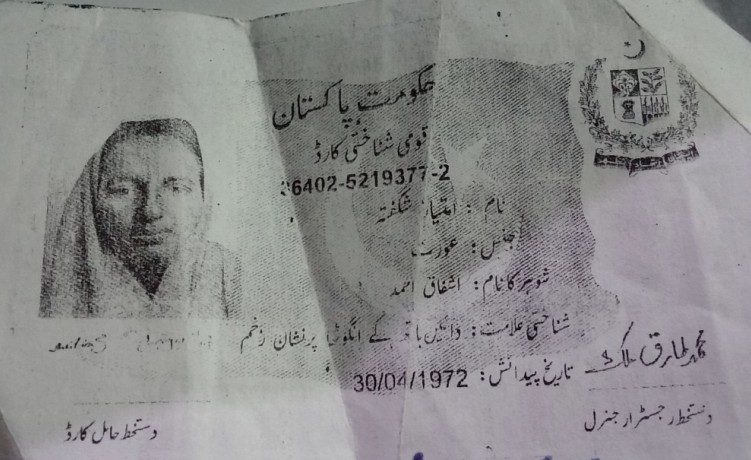 حکومت پاکستان
قومی شناختی کارڈ
36402-5219377-2
نام : امتیاز شگفتہ
جنس : عورت
شوہر کا نام : اشفاق احمد
شناختی علامت : دائیں ہاتھ کے انگوٹھے پر نشان زخم
تاریخ پیدائش : 30/04/1972
محمد طارق ملک
دستخط حامل کارڈ
دستخط رجسٹرار جنرل